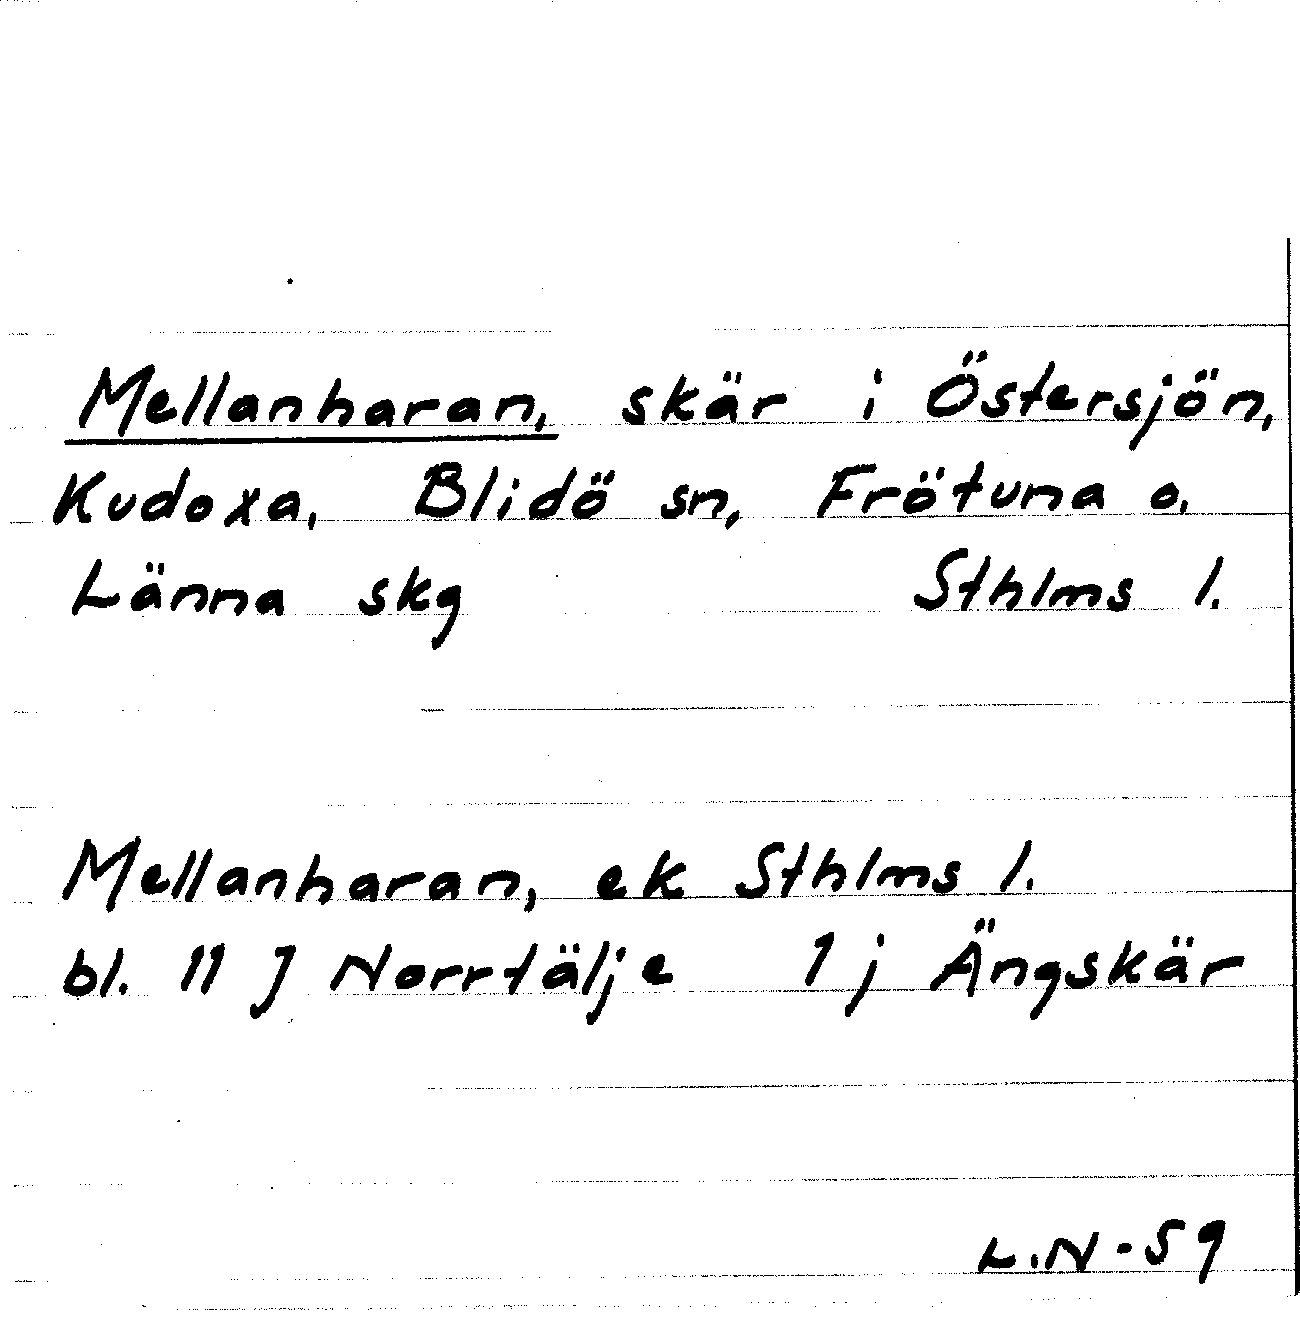 Mellanharan, skär i Östersjön,
Kudoxa, Blidö sn, Frötuna o.
Länna skg Sthlms l.
Mellanharan, ek Sthlms l.
bl. 11 J Norrtälje 1 j Ängskär
L.N-59